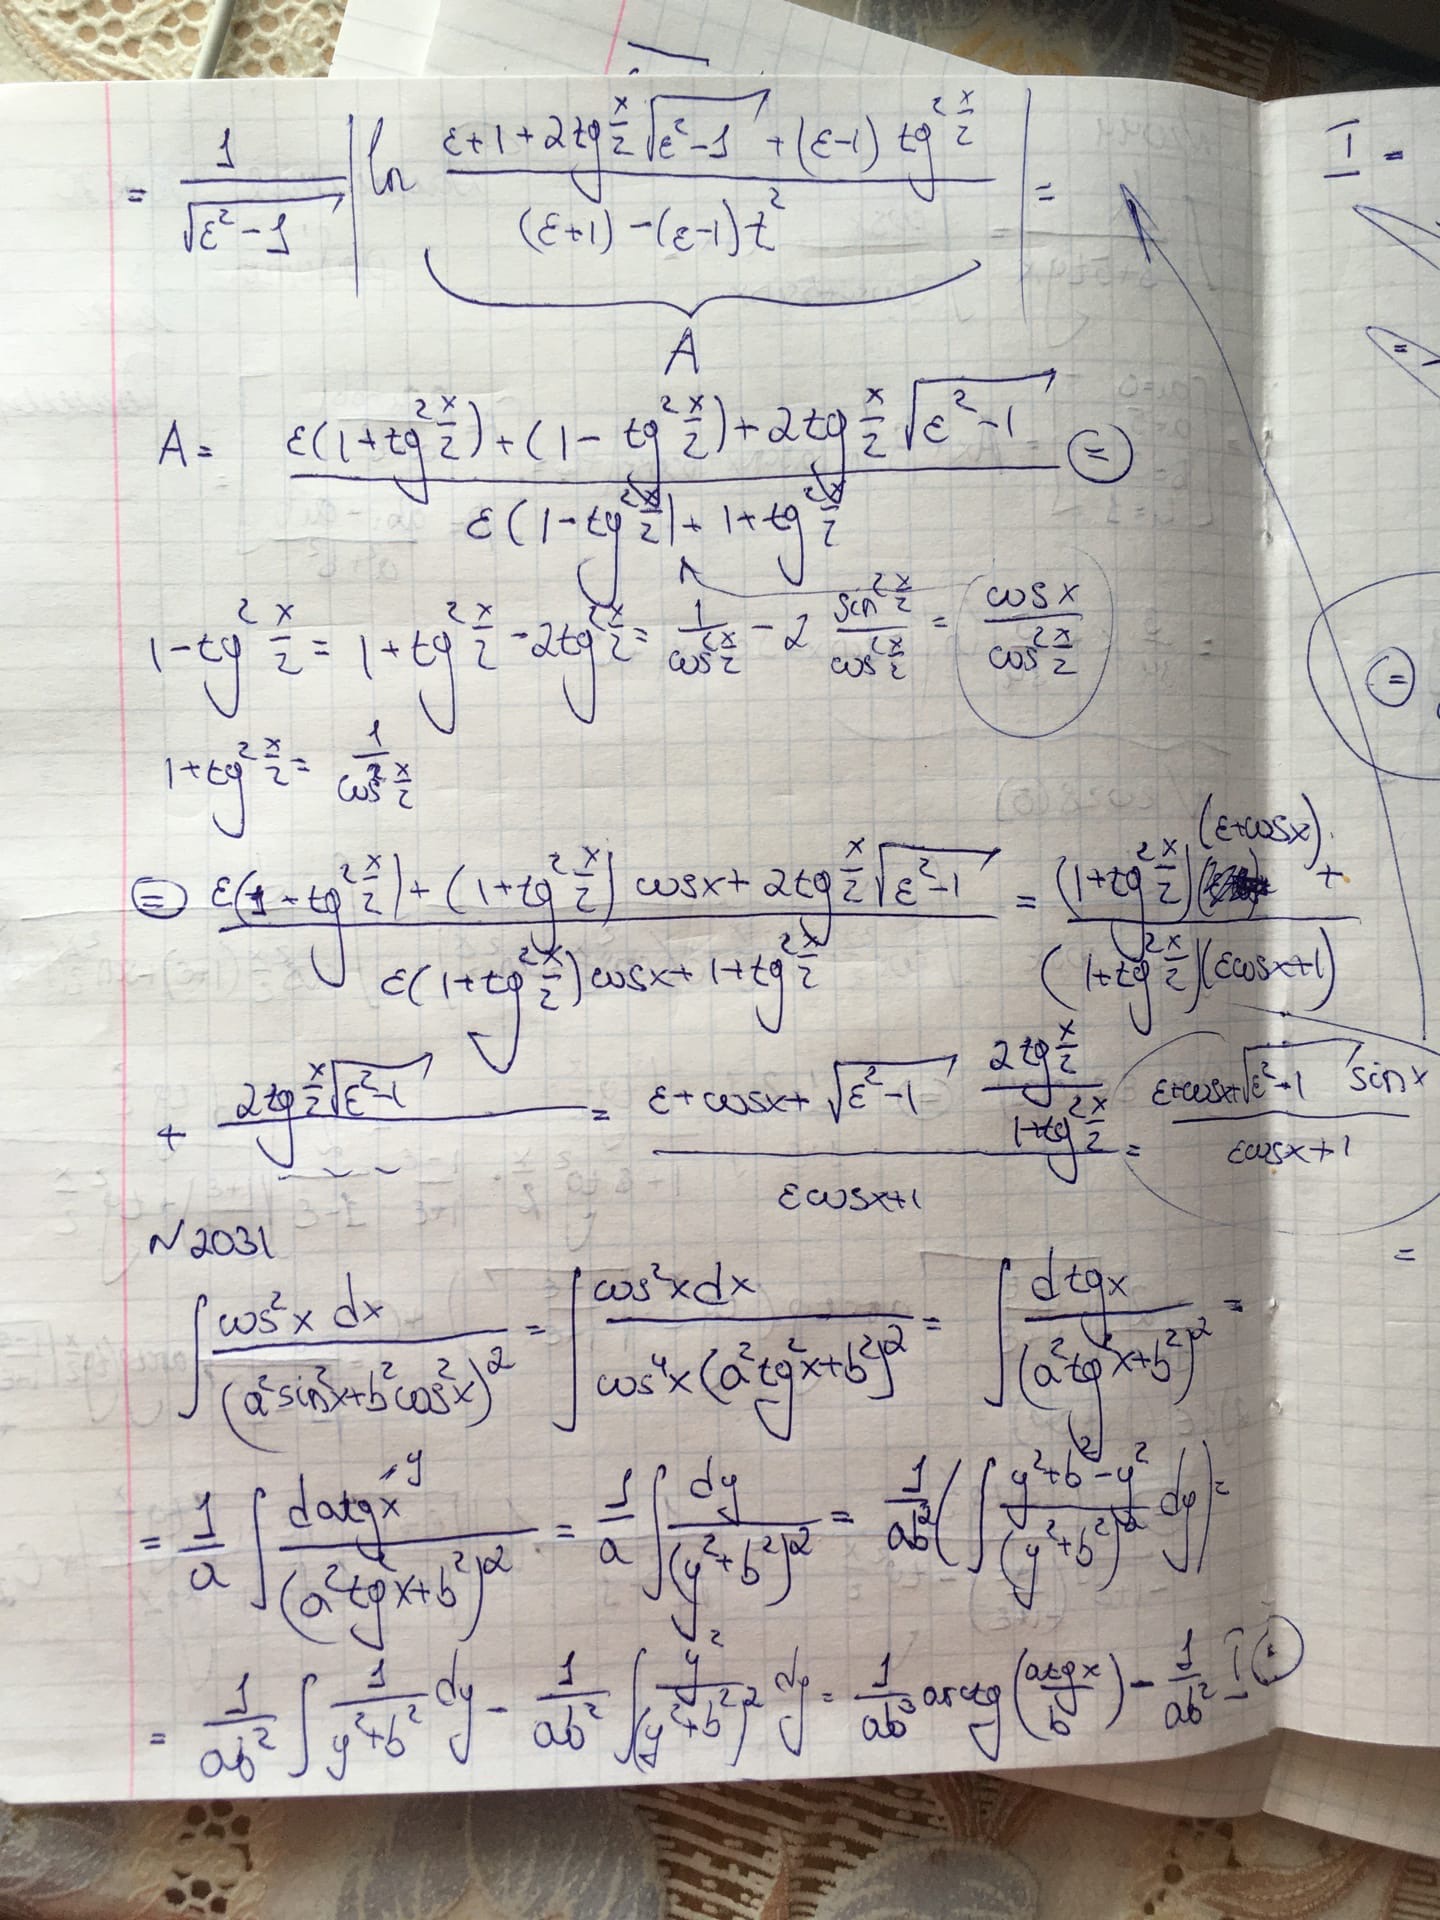 = 1/√(ε²-1) | ln (ε+1+2tg x/2 √(ε²-1) + (ε-1) tg² x/2) / ((ε+1)-(ε-1)t²) | =
A
A = (ε(1+tg² x/2)+(1-tg² x/2)+2tg x/2 √(ε²-1)) / (ε(1-tg² x/2)+1+tg² x/2) (=)
1-tg² x/2 = 1+tg² x/2 - 2tg² x/2 = 1/cos² x/2 - 2 sin² x/2 / cos² x/2 = cosx / cos² x/2
1+tg² x/2 = 1/cos² x/2
(=) (ε(1+tg² x/2)+(1+tg² x/2) cosx + 2tg x/2 √(ε²-1)) / (ε(1+tg² x/2)cosx+1+tg² x/2) = (1+tg² x/2)(ε+cosx) / (1+tg² x/2)(εcosx+1) +
+ 2tg x/2 √(ε²-1) / ~ ~ = (ε+cosx+√(ε²-1) 2tg x/2 / (1+tg² x/2)) / (εcosx+1) = (ε+cosx+√(ε²-1) sinx) / (εcosx+1)
N2031
∫ cos²x dx / (a²sin²x+b²cos²x)² = ∫ cos²x dx / cos⁴x(a²tg²x+b²)² = ∫ dtgx / (a²tg²x+b²)² =
= 1/a ∫ datgx / (a²tg²x+b²)² y = 1/a ∫ dy / (y²+b²)² = 1/ab² (∫ (y²+b²-y²) / (y²+b²)² dy) =
= 1/ab² ∫ 1/(y²+b²) dy - 1/ab² ∫ y²/(y²+b²)² dy = 1/ab³ arctg (atgx / b) - 1/ab² I (=)
I =
=
(=)
=